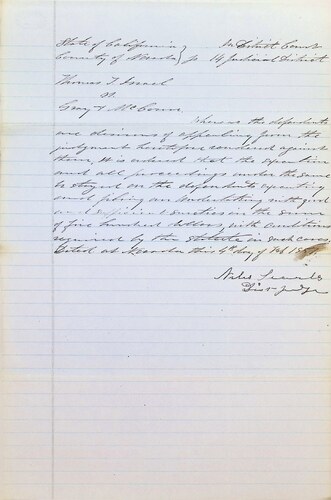 State of California } In District Court
County of Nevada } ss 14 Judicial District
Thomas F Israel
vs
Gray & McConn
Whereas the defendants
are desirous of appealing from the
judgment heretofore rendered against
them, it is ordered that the execution
and all proceedings under the same
be stayed on the defendants executing
and filing an undertaking with good
and sufficient sureties in the sum
of five hundred dollars, with conditions
required by the statute in such cases.
Dated at Nevada this 4th day of Feb
Niles Searls
Dist Judge